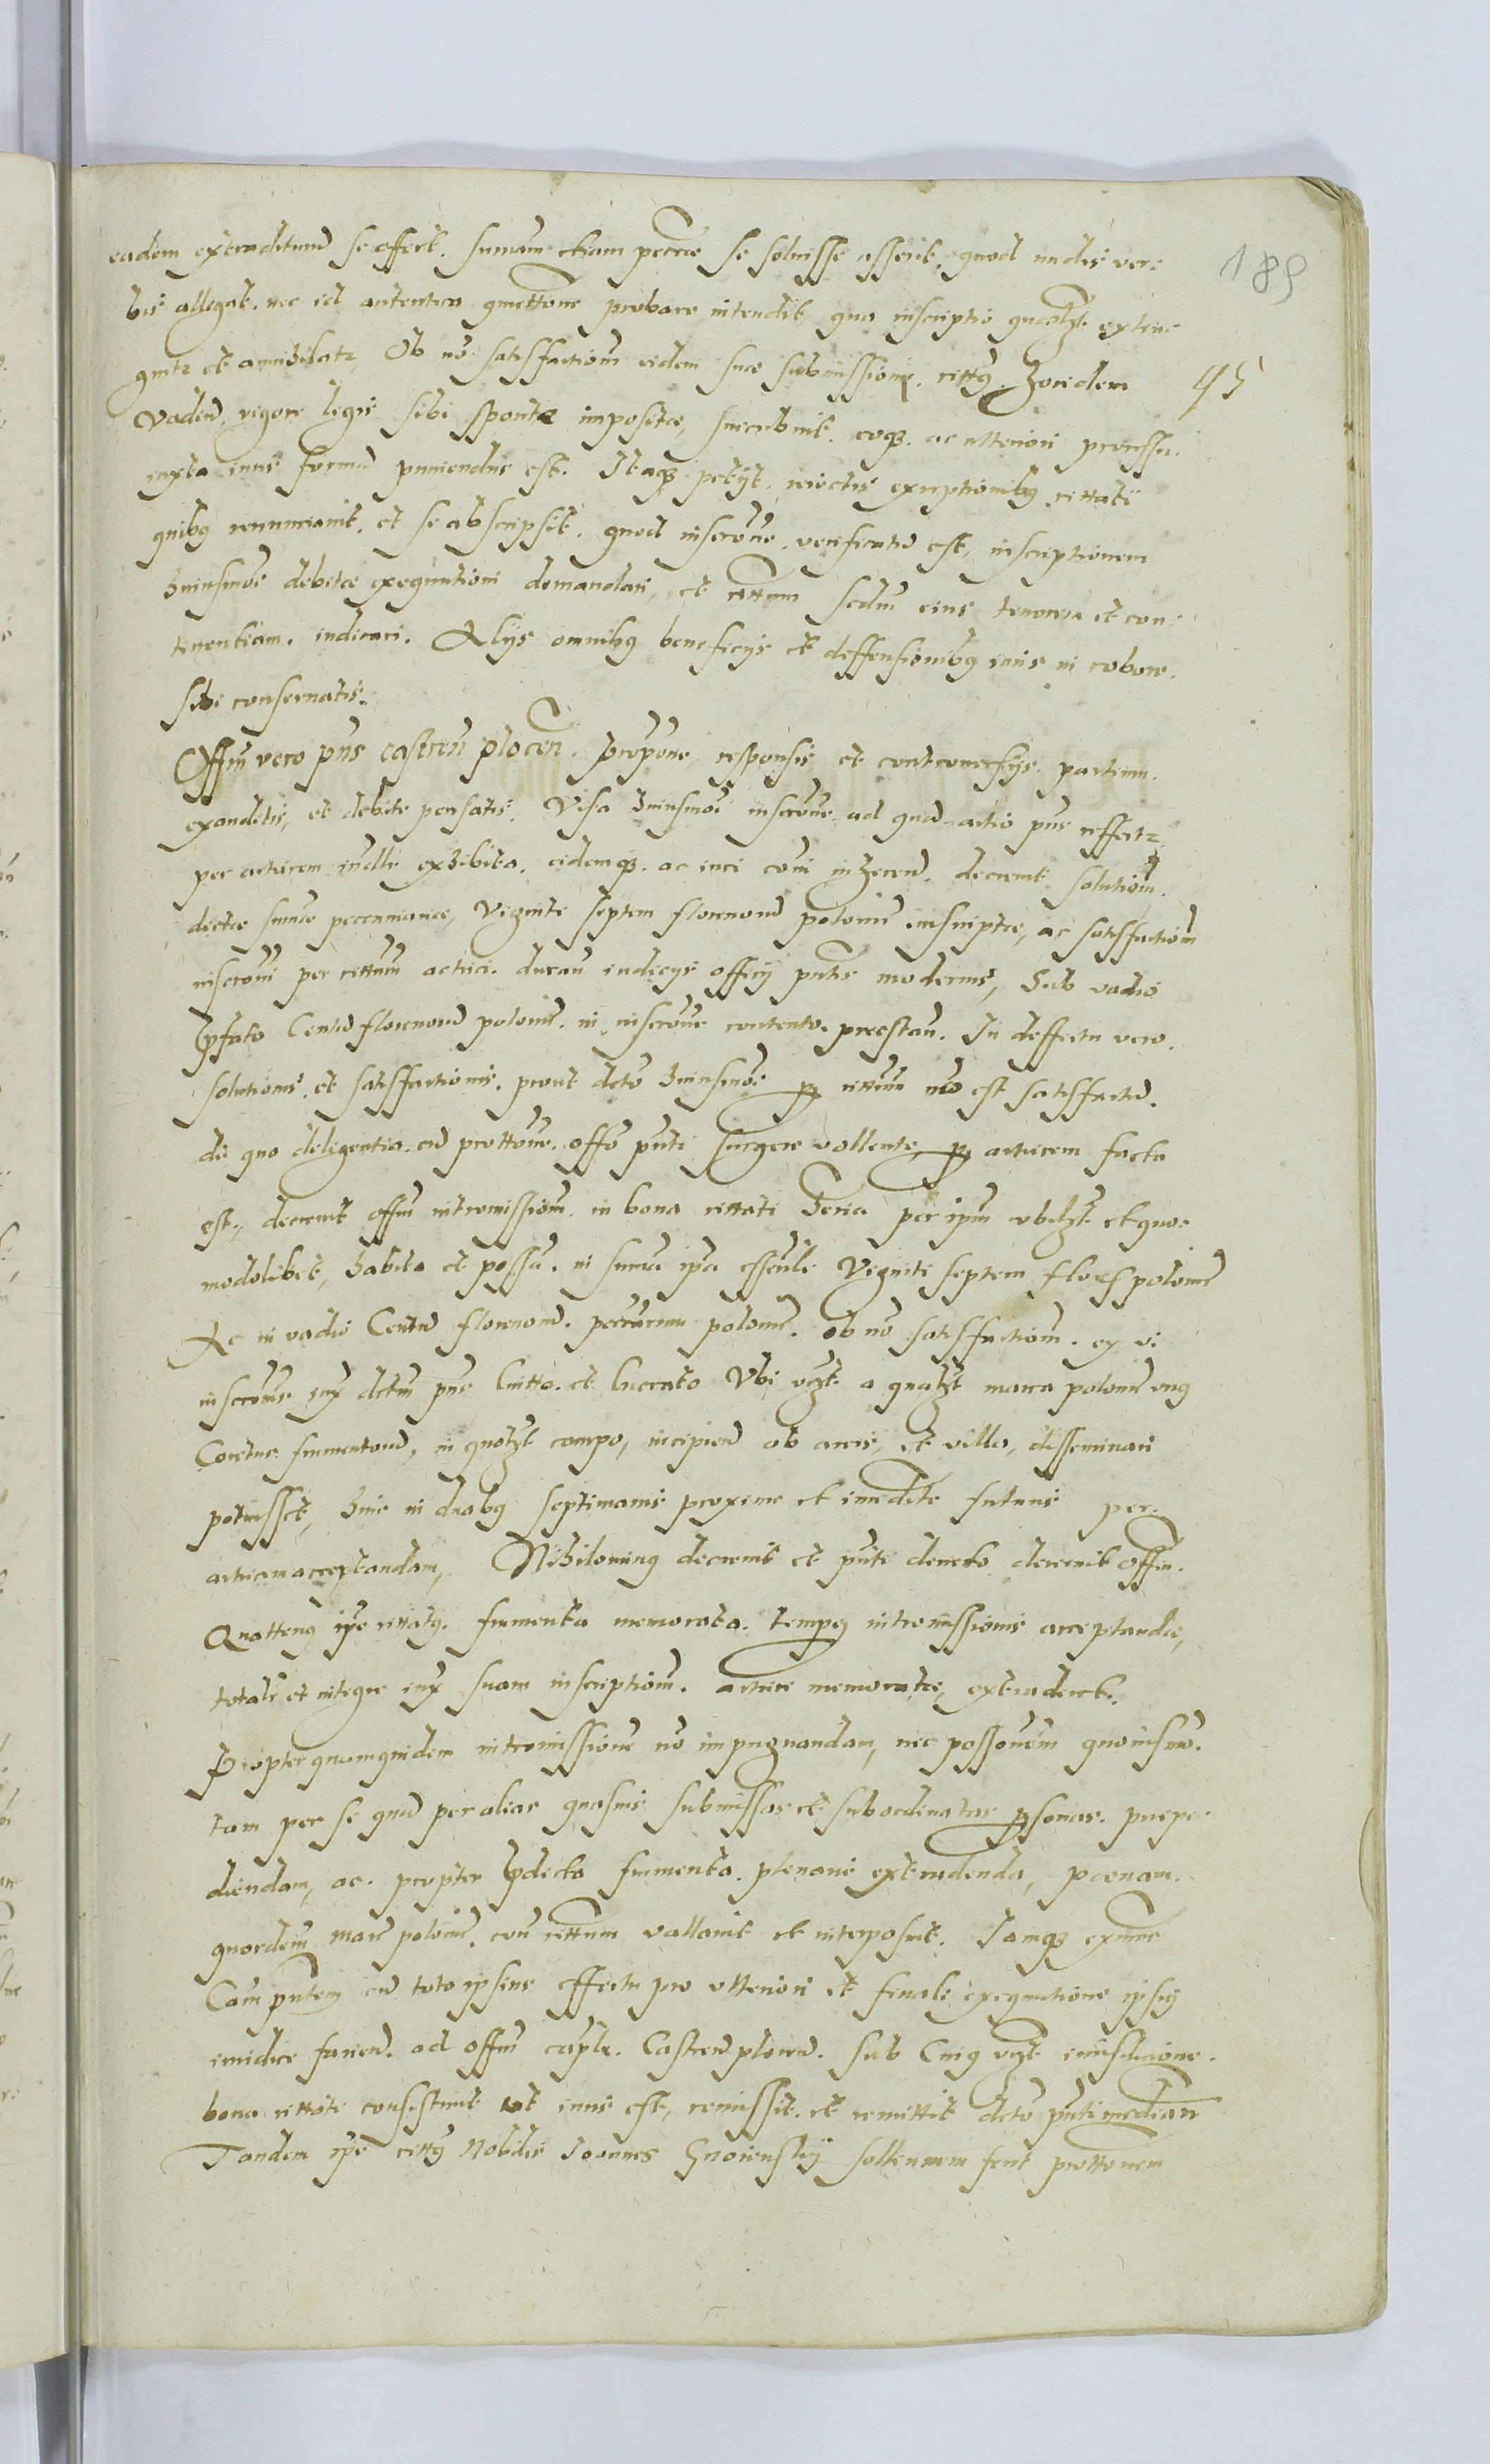 189
eadem extraditurum se offert. summam etiam pectae se soluisse asserit, quod nudis ver:
bis allegat. nec id autentica quittone probare intendit, qua inscriptio quaelzt extin:
guitr et annihilatr, Ob no satisfactiom eidem suae submissioni. cittus. Zoridem
95
Vadend. vigore legis sibi sponte impositae, succubuit. eoque. ac ulteriori processu.
iuxta iuris formam puniendus est. Itaque petyt. reiectis exceptionibus cittati
quibus renunciauit. et se abscripsit. quod inscrone. verificatum est, inscriptionem
huiusmoi debitae exequutioni demandari, et cittum secdum eius tenorem et con:
tinentiam. iudicari. Alys omnibus beneficys et deffensionibus iuris in robore.
sibi conseruatis.
Offm vero pns castren plocen. propone, responsis, et controuersys. partium.
exauditis, et debite pensatis. Visa huiusmoi inscrone. ad quam actio pns reffertr
per actricem iudlr exhibita. eidemque. ac iuri coni inherend. decreuit solutiom.
dictae summae peccuniariae, Viginti septem florenorum polonm. inscriptae, ac satisfactiom
inscroni per cittum actrici. duran iudicys officy pntis modernis, Sub vadio
pfato Centum florenorum polonm. in inscrone contento. praestan. In deffectu vero.
solutionis, et satisfactionis. prout dcto huiusmoi p cittum no est satisfactum.
de quo deligentia. cum prottone. offo pnti surgere vollente, p actricem facta
est., decreuit offm intromissiom. in bona cittati haeria per ipm vbilzt et quo:
modolibet, habita et possa. in summa ipa essenli Viginti septem flor polonm
Ac in vadio Centum florenorum. peccuniar polonm. ob no satisfactiom. ex vi
inscronis iux dctm pns luitto. et lucrato Vbi vzt a qualzt marca polonm vng
Coretus frumentorum, in quolzt campo, incipiend ab areis, et villa, disseminari
potuisset, hinc in duabus septimanis proxime et imediate futuris per
actricem acceptandam, Nihilominus decreuit et pnti decreto decernit Offm.
Quattenus ipe cittatus. frumenta memorata. tempore intromissionis acceptandae,
totalr et integre iux suam inscriptiom. actrici memoratae, extraderet.
Propter quamquidem intromissione no impugnandam, nec possonem quouismo.
tam per se quam per alias quasuis submissas et subordinatas psonas. praepe:
diendam, ac. propter pdicta frumenta. plenarie extradenda, poenam.
quordecim marc polonm. con cittum vallauit et interposuit. Iamque exnunc
Cam pntem cum toto ipsius effectu pro vlteriori et finali exequutione ipsius
iuridice faciend. ad offm caple. Castren plocen. sub Cuius vzt iurisdicione.
bona cittati consistunt ut iuris est, remissit. et remittit dcto pnti median
Tandem ipe cittus Nobilis Joannes Gnoienskii sollennem fecit prottonem